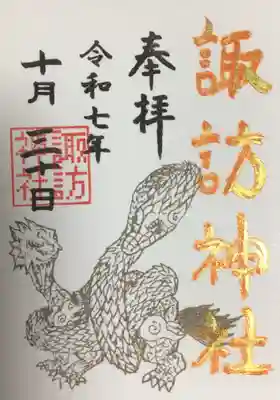 諏訪神社
奉拝
令和七年
十月三十日
諏訪神社